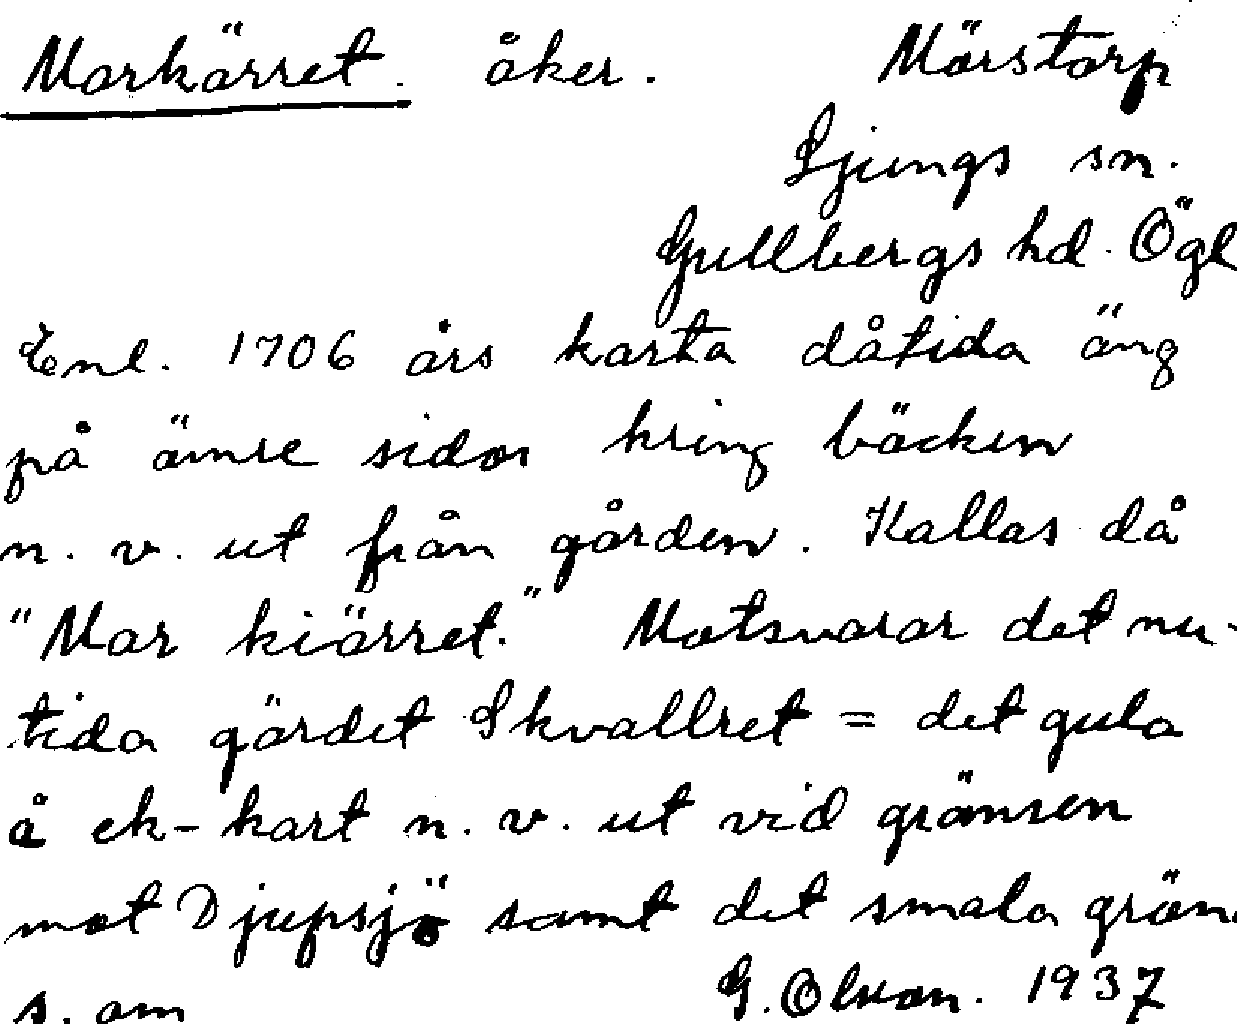 Markärret. åker. Mårstorp
Ljungs sn.
Gullbergs hd. Ögl
Enl. 1706 års karta dåtida äng
på ömse sidor kring bäcken
n. v. ut från gården. Kallas då
"Mar kiärret." Motsvarar det nu-
tida gärdet Skvallret = det gula
å ek-kart n. v. ut vid gränsen
mot Djupsjö samt det smala grän.
s. om G. Olson. 1937